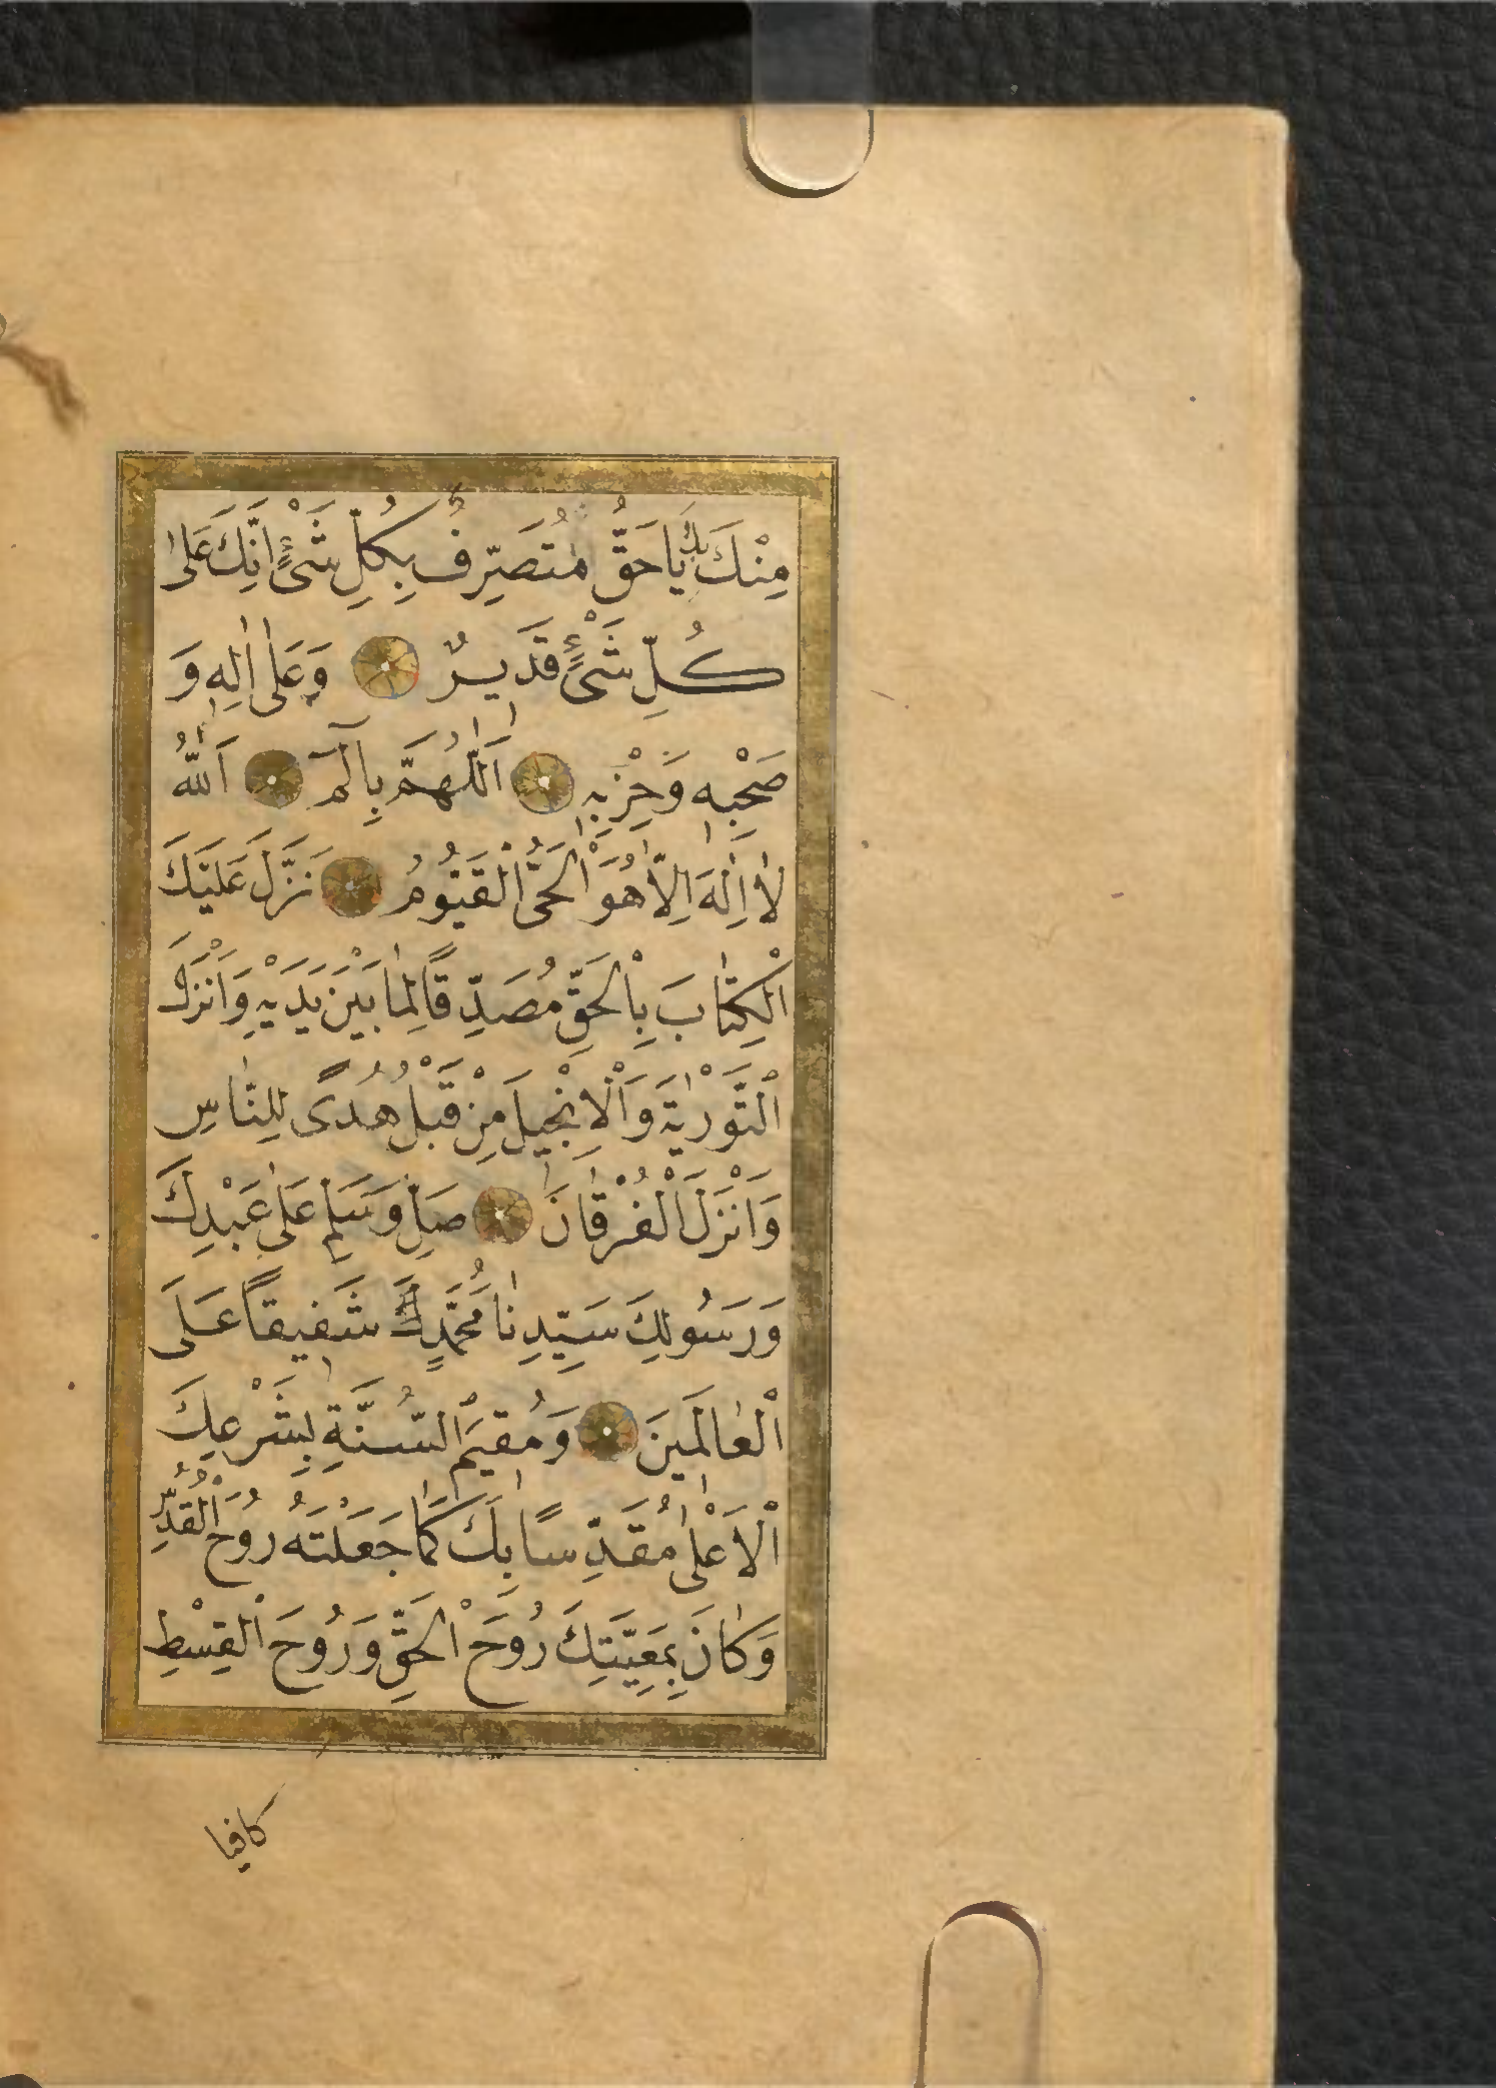 مِنْكَ بِكَ يَا حَقُّ مُتَصَرِّفٌ بِكُلِّ شَىْءٍ اِنَّكَ عَلٰى
كُلِّ شَىْءٍ قَدِيرٌ وَعَلٰى اٰلِهٖ وَ
صَحْبِهٖ وَحِزْبِهٖ اَللّٰهُمَّ بِآلٓمٓ اَللّٰهُ
لَا اِلٰهَ اِلَّا هُوَ الْحَىُّ الْقَيُّومُ نَزَّلَ عَلَيْكَ
الْكِتَابَ بِالْحَقِّ مُصَدِّقًا لِمَا بَيْنَ يَدَيْهِ وَاَنْزَلَ
التَّوْرٰيةَ وَالْاِنْجِيلَ مِنْ قَبْلُ هُدًى لِلنَّاسِ
وَاَنْزَلَ الْفُرْقَانَ صَلِّ وَسَلِّمْ عَلٰى عَبْدِكَ
وَرَسُولِكَ سَيِّدِنَا مُحَمَّدٍ شَفِيقًا عَلَى
الْعَالَمِينَ وَمُقِيمَ السُّنَّةِ بِشَرْعِكَ
الْاَعْلٰى مُقَدِّسًا بِكَ كَمَا جَعَلْتَهُ رُوحَ الْقُدُسِ
وَكَانَ بِمَعِيَّتِكَ رُوحَ الْحَقِّ وَرُوحَ الْقِسْطِ
كافيا